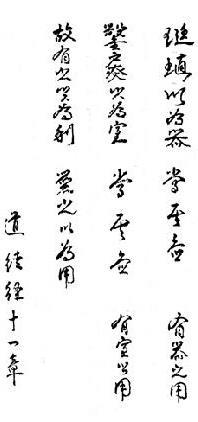 埏埴以為器 當其無 有器之用
鑿戶牖以為室 當其無 有室之用
故有之以為利 無之以為用
道德經十一章